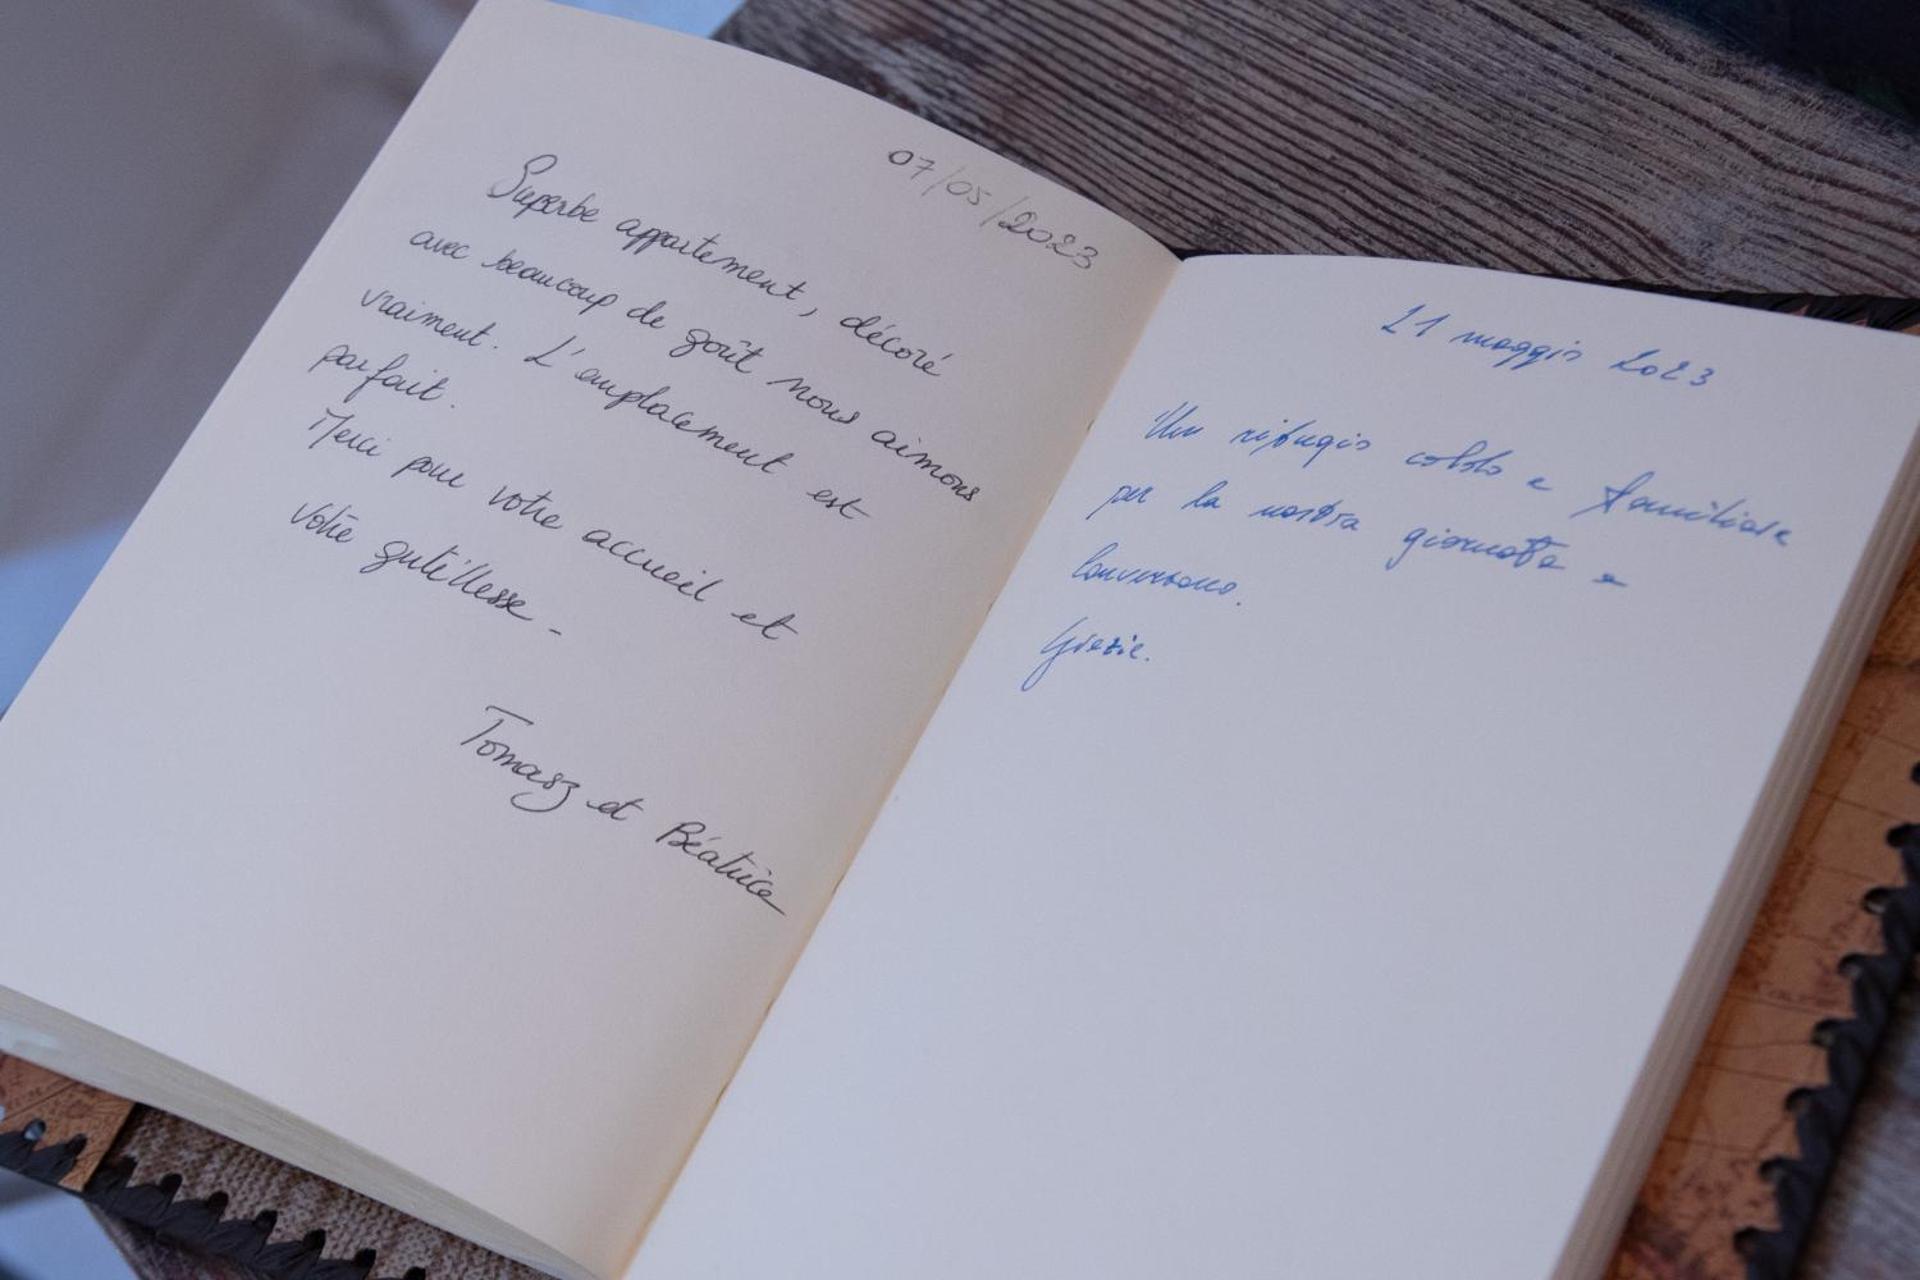 07/05/2023
Superbe appartement, décoré
avec beaucoup de goût nous aimons
vraiment. L'emplacement est
parfait.
Merci pour votre accueil et
votre gentillesse -
Tomasz et Béatrice
21 maggio 2023
Un rifugio caldo e familiare
per la nostra giornata a
Conversano.
Grazie.